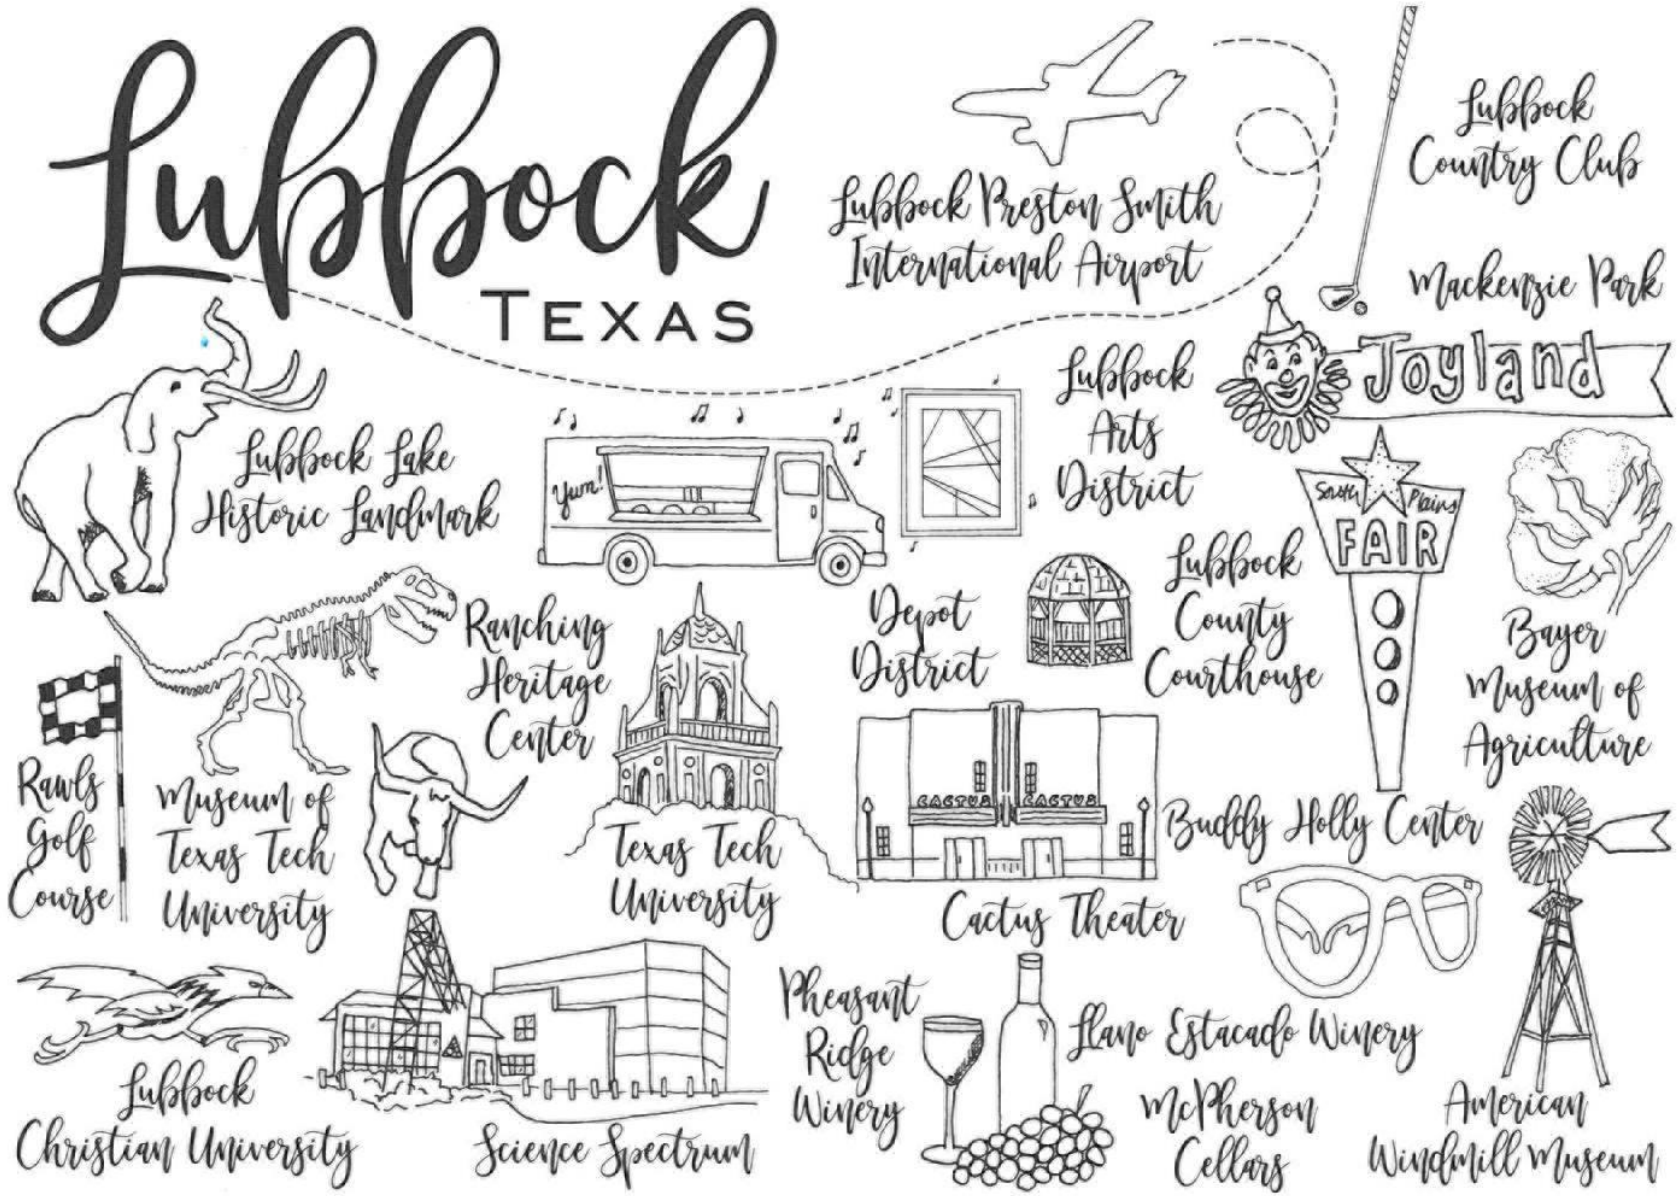 Lubbock
TEXAS
Lubbock Preston Smith
International Airport
Lubbock
Country Club
Mackenzie Park
Joyland
Lubbock Lake
Historic Landmark
Yum!
Lubbock
Arts
District
South Plains
FAIR
Bayer
Museum of
Agriculture
Ranching
Heritage
Center
Depot
District
Lubbock
County
Courthouse
Rawls
Golf
Course
Museum of
Texas Tech
University
Texas Tech
University
CACTUS CACTUS
Cactus Theater
Buddy Holly Center
Lubbock
Christian University
Science Spectrum
Pheasant
Ridge
Winery
Llano Estacado Winery
McPherson
Cellars
American
Windmill Museum